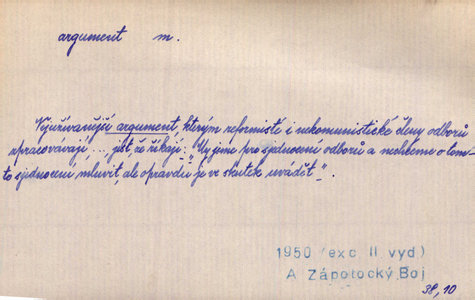 argument m.
Nejužívanější argument, kterým reformisté i nekomunistické členy odborů
zpracovávají, ... jest že říkají: "My jsme pro sjednocení odborů a nechceme o tom-
to sjednocení mluvit, ale opravdu je ve skutek uvádět".
1950 (exc. II. vyd)
A Zápotocký, Boj
38, 10